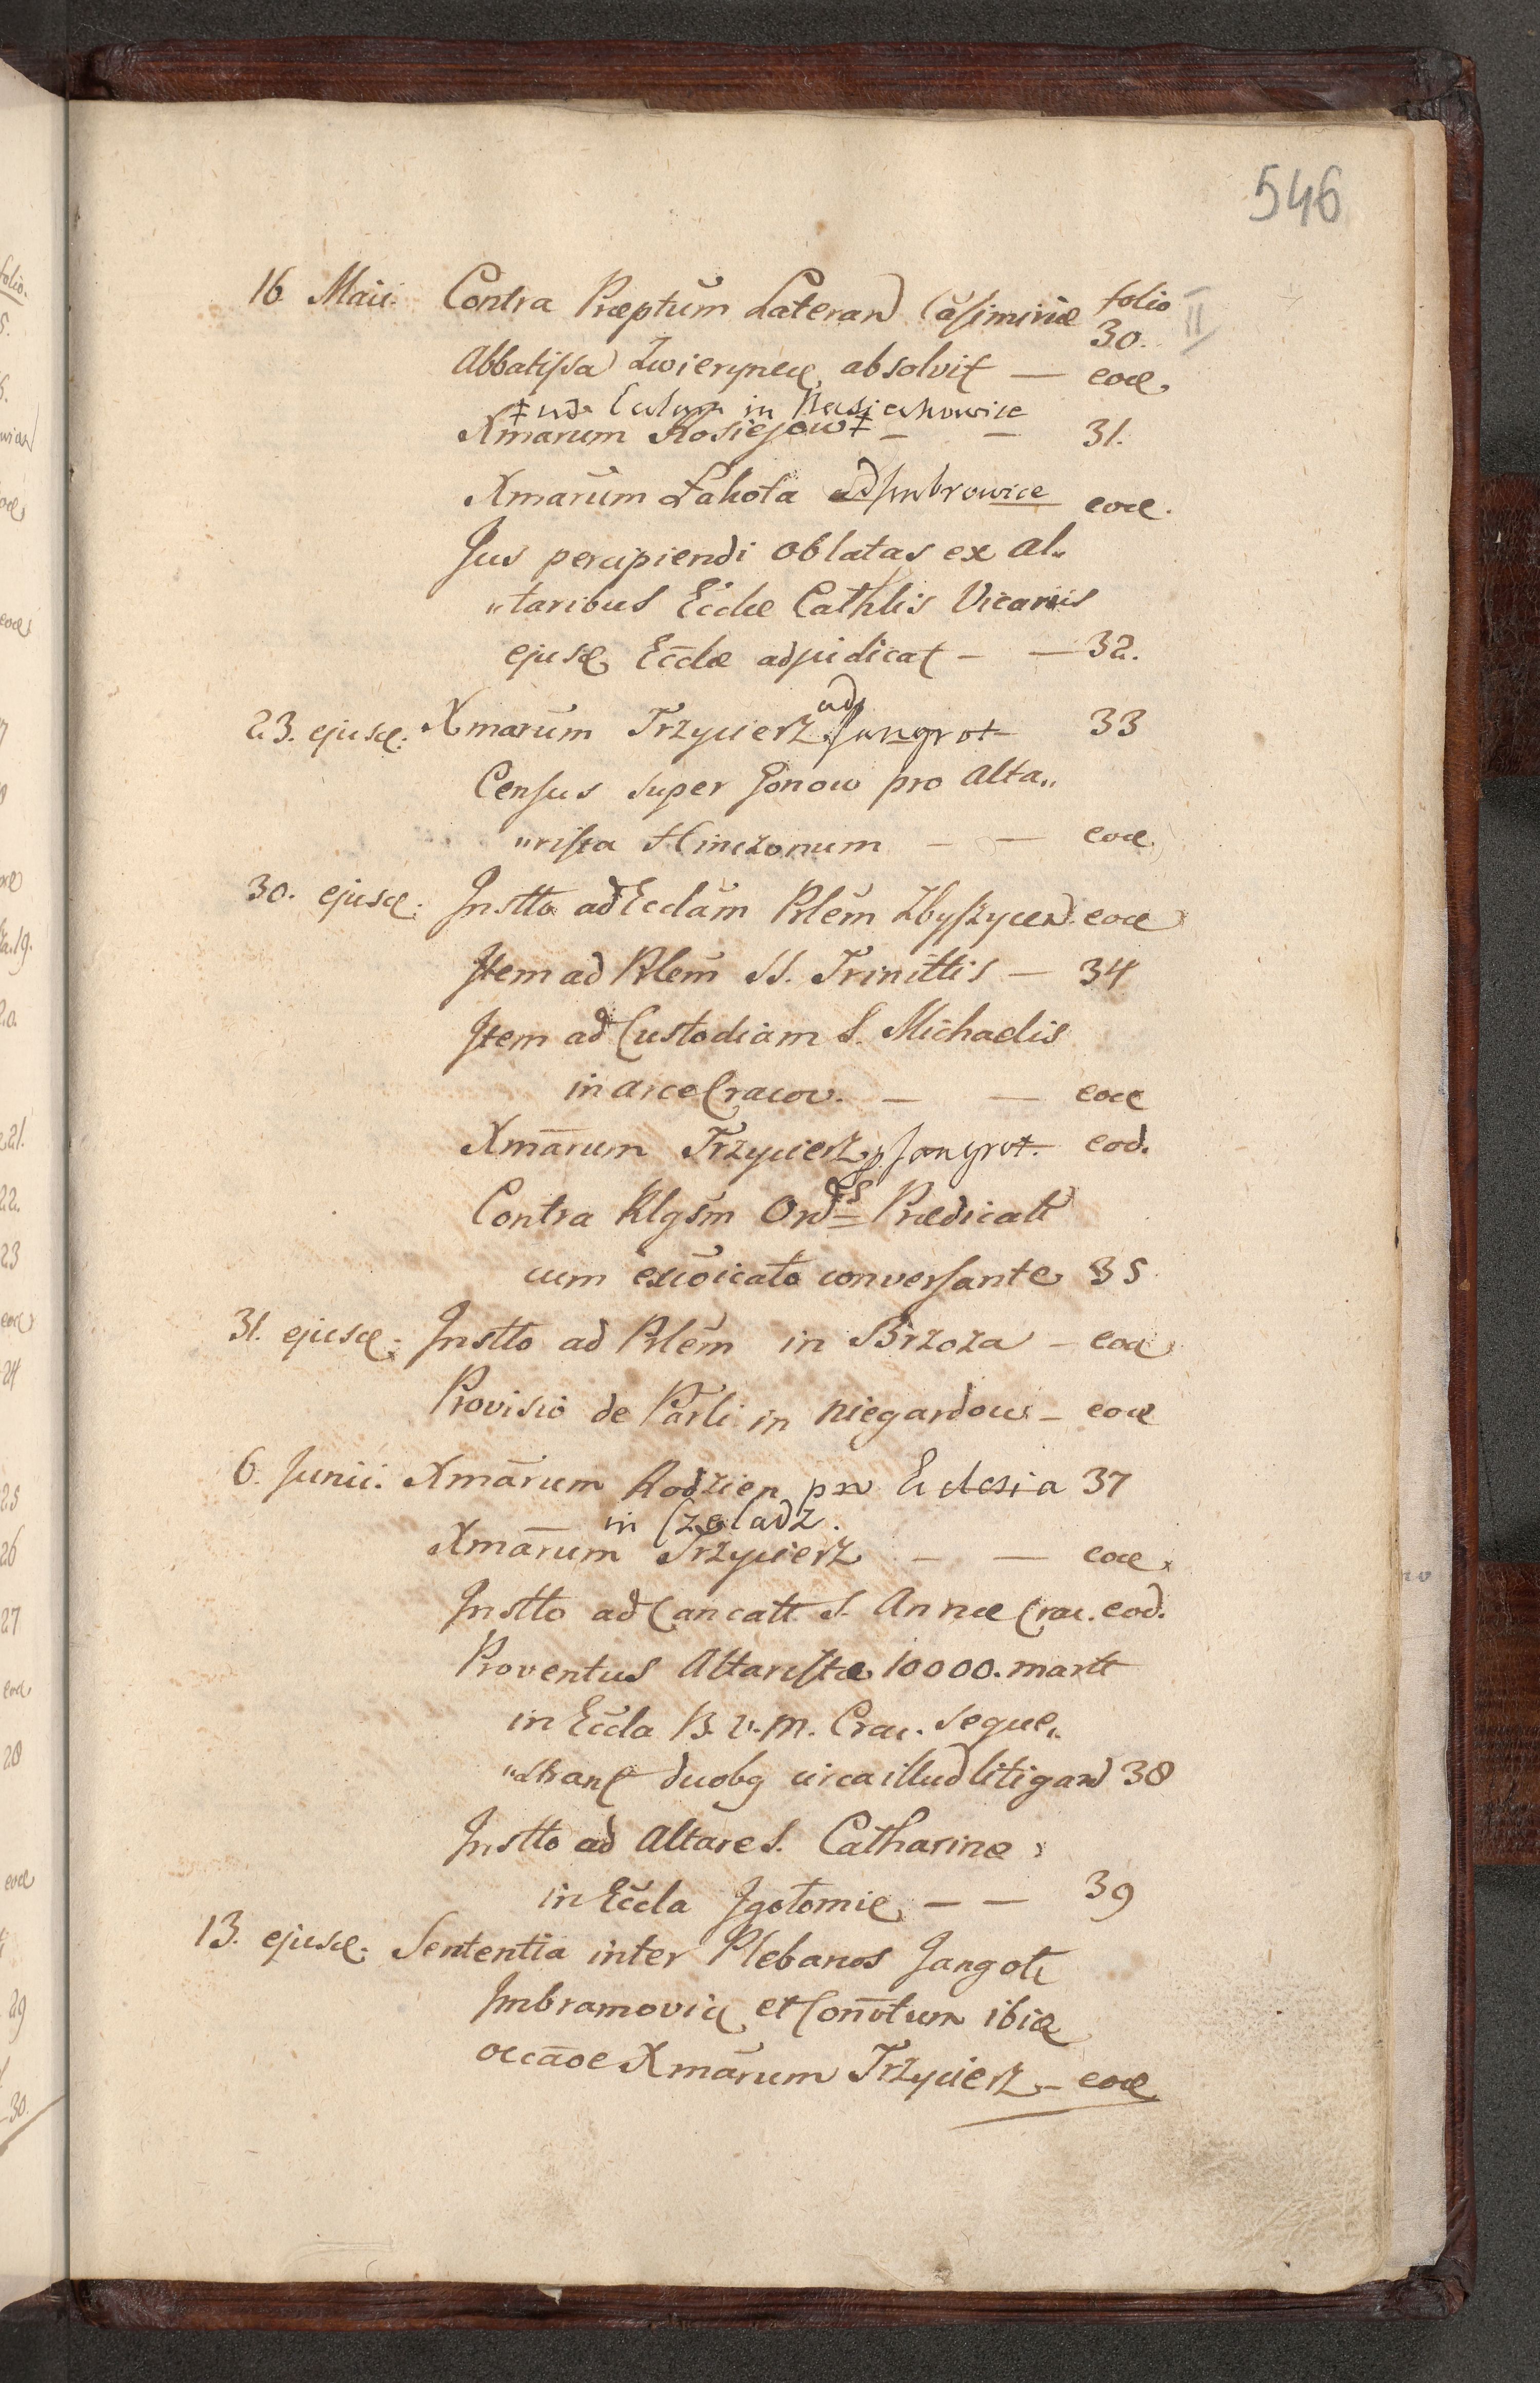 546
folio
16 Maii. Contra Præptum Lateran Casimiriæ 30. II
Abbatissa Zwierynec absolvit — eod.
‡ ad Eccl in Raciechowice
Xmarum Kosiejow ‡ — — 31.
Xmarum Łahota ad Imbrowice eod.
Jus percipiendi oblatas ex al„
„taribus Eccłæ Cathlis Vicariis
ejusd. Eccłæ adjudicat — — 32.
23. ejusd. Xmarum Trzycierz ad Jangrot 33
Census super Gonow pro Alta„
„rista Hinczonum — — eod.
30. ejusd. Instto ad Eccłam Plem Zbyszycen. eod
Item ad Plem SS. Trinittis — 34
Item ad Custodiam S. Michaelis
in arce Cracov. — — eod
Xmārum Trzycierz p. Jangrot. eod.
Contra Rlgsm Ordis Prædicatt
cum excoicato conversante 35
31. ejusd. Instto ad Plem in Brzoza — eod
Provisio de Parli in Niegardow — eod
6. Junii. Xmārum Rodzien pro Eclesia 37
in Czeladz.
Xmārum Trzycierz — — eod.
Instto ad Cancatt S. Annæ Crac. eod.
Proventus Altaristæ 10000. martt
in Eccla B. V. M. Crac. seque„
„strant duobg circa illud litigand 38
Instto ad Altare S. Catharinæ
in Eccla Igołomie — — 39
13. ejusd. Sententia inter Plebanos Jangott
Imbramovic et Convtum ibid
occāoe Xmārum Trzycierz — eod